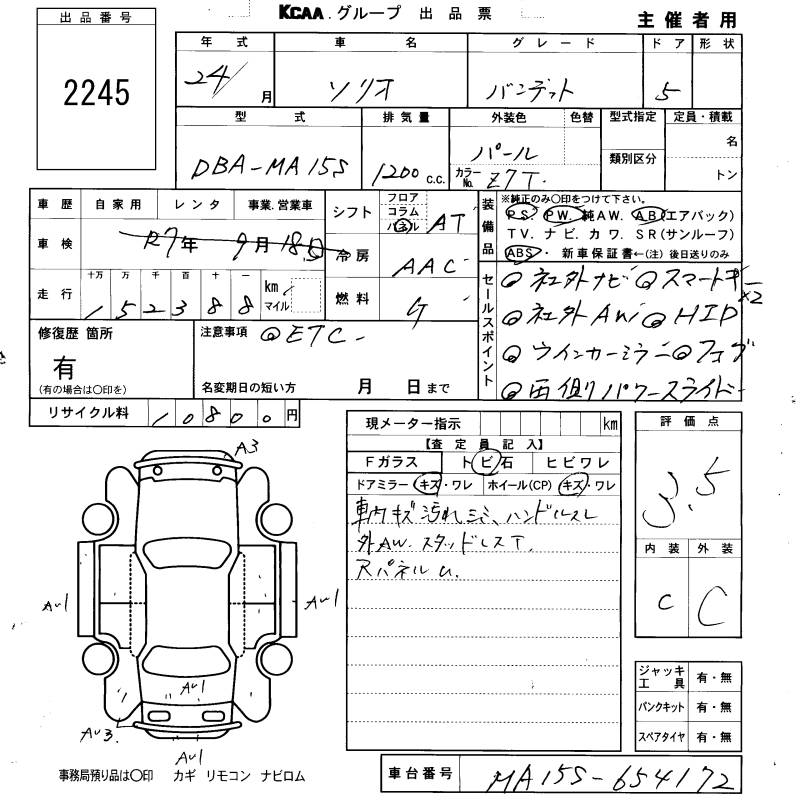 出品番号
2245
KCAA.グループ 出品票
主催者用
年式 車名 グレード ドア 形状
24/ 月 ソリオ バンデット 5
型式 排気量 外装色 色替 型式指定 定員・積載
DBA-MA15S 1200 c.c. パール 名
カラーNo. Z7T. 類別区分 トン
車歴 自家用 レンタ 事業.営業車
車検 R7年 9月18日
走行 十万 万 千 百 十 一 km マイル
152388
シフト フロア コラム パネル AT
冷房 AAC
燃料 ガ
装備品
※純正のみ○印をつけて下さい。
PS. PW. 純AW. AB(エアバック)
TV. ナビ. カワ. SR(サンルーフ)
ABS・ 新車保証書←(注)後日送りのみ
セールスポイント
◎社外ナビ◎スマートキーx2
◎社外AW◎HID
◎ウインカーミラー◎フォグ
◎両側パワースライドー
修復歴 箇所
有
(有の場合は○印を)
注意事項 ◎ETC-
名変期日の短い方 月 日まで
リサイクル料 10800円
現メーター指示 km
【査定員記入】
Fガラス トビ石 ヒビワレ
ドアミラー キズ・ワレ ホイール(CP) キズ・ワレ
車内キズ汚れシミ、ハンドルスレ
外AW. スタッドレスT.
RパネルU.
評価点
3.5
内装 外装
C C
ジャッキ工具 有・無
パンクキット 有・無
スペアタイヤ 有・無
A3
AU1
AU1
AU1
AU3.
AU1
事務局預り品は○印 カギ リモコン ナビロム
車台番号 MA15S-654172